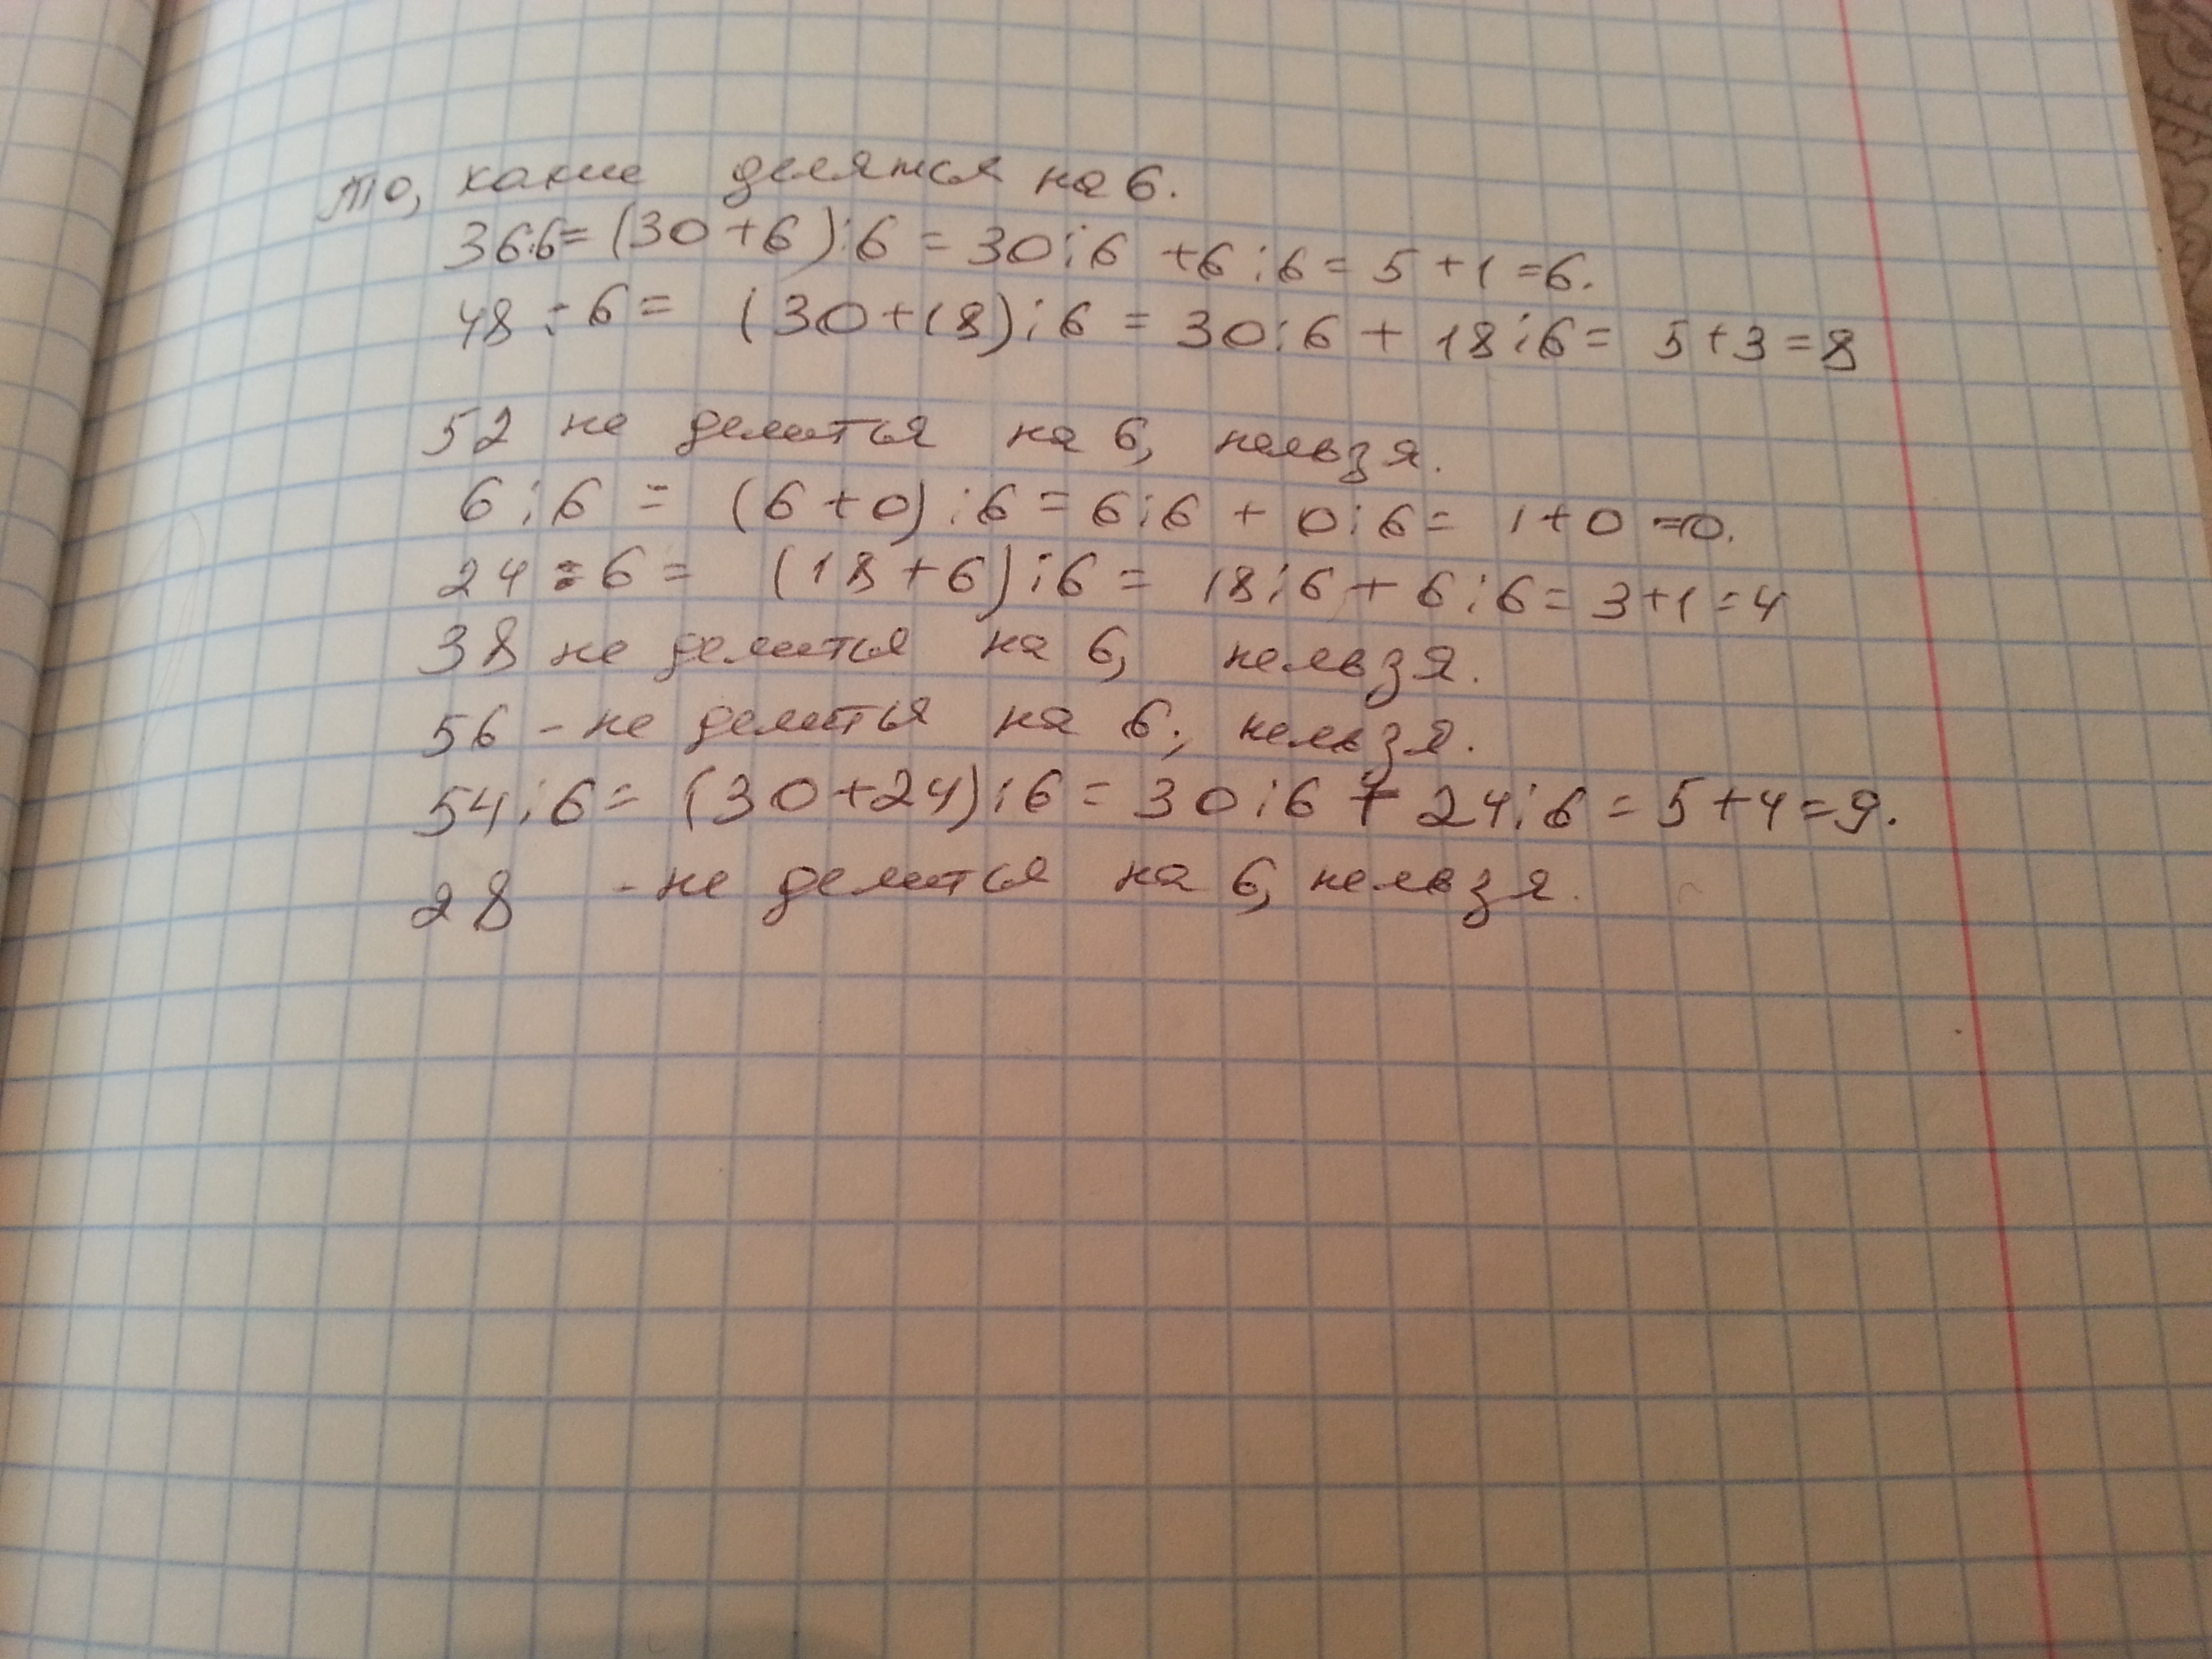 то, какие делятся на 6.
36:6=(30+6):6=30:6+6:6=5+1=6.
48:6=(30+18):6=30:6+18:6=5+3=8
52 не делится на 6, нельзя.
6:6=(6+0):6=6:6+0:6=1+0=0.
24:6=(18+6):6=18:6+6:6=3+1=4
38 не делится на 6, нельзя.
56 - не делится на 6., нельзя.
54:6=(30+24):6=30:6+24:6=5+4=9.
28 - не делится на 6, нельзя.